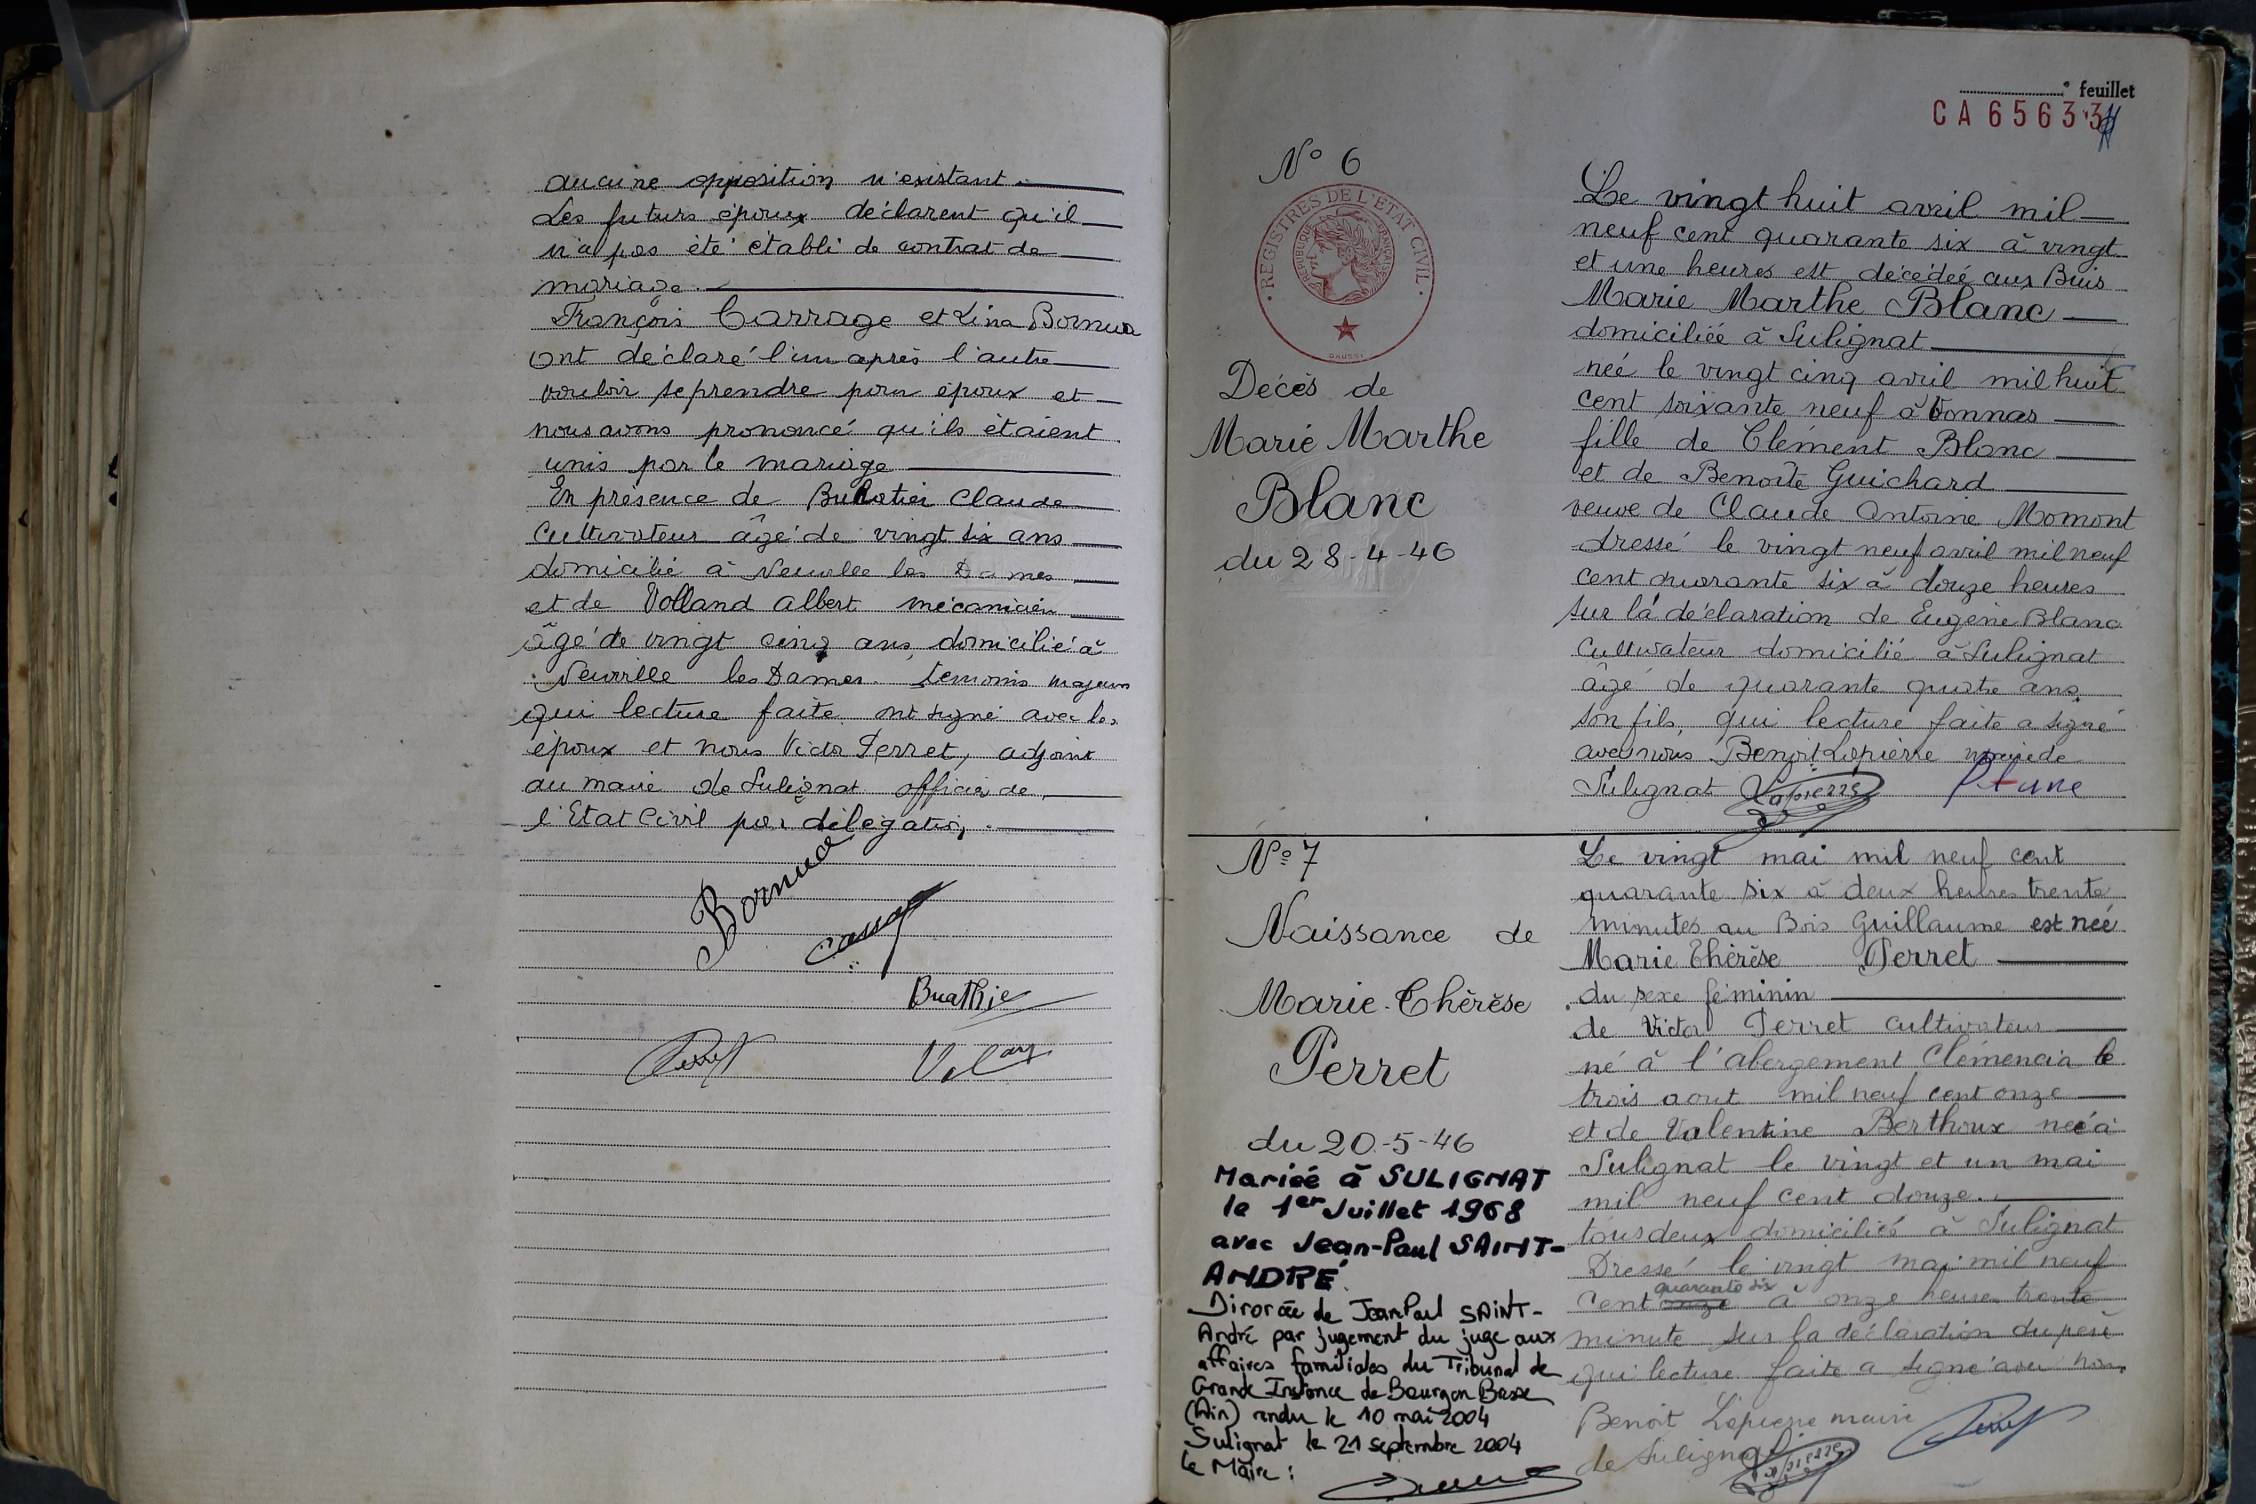 aucune opposition n'existant.
Les futurs époux déclarent qu'il
n'a pas été établi de contrat de
mariage.
François Carrage et Lina Bornua
ont déclaré l'un après l'autre
vouloir se prendre pour époux et
nous avons prononcé qu'ils étaient
unis par le mariage
En présence de Claude
Cultivateur âgé de vingt six ans
domicilié à Neuville les Dames
et de Volland Albert mécanicien
âgé de vingt cinq ans, domicilié à
Neuville les Dames. témoins majeurs
qui lecture faite ont signé avec les
époux et nous Victor Perret, adjoint
au maire de Sulignat officier de
l'Etat Civil par délégation.
Buathie
Perret
feuillet
CA 6563
N° 6
REGISTRES DE L'ETAT CIVIL
REPUBLIQUE FRANÇAISE
Décès de
Marie Marthe
Blanc
du 28-4-46
Le vingt huit avril mil
neuf cent quarante six à vingt
et une heures est décédée aux Buis
Marie Marthe Blanc
domiciliée à Sulignat
née le vingt cinq avril mil huit
cent soixante neuf à Vonnas
fille de Clément Blanc
et de Benoite Guichard
veuve de Claude Antoine Momont
dressé le vingt neuf avril mil neuf
cent quarante six à douze heures
sur la déclaration de Eugène Blanc
Cultivateur domicilié à Sulignat
âgé de quarante quatre ans
son fils, qui lecture faite a signé
avec nous Benoit Lapierre maire de
Sulignat Lapierre
N° 7
Naissance de
Marie-Thérèse
Perret
du 20-5-46
Mariée à SULIGNAT
le 1er Juillet 1968
avec Jean-Paul SAINT-
ANDRÉ.
Divorcée de Jean Paul SAINT-
André par jugement du juge aux
affaires familiales du Tribunal de
Grande Instance de Bourg en Bresse
(Ain) rendu le 10 mai 2004
Sulignat le 21 septembre 2004
Le Maire :
Le vingt mai mil neuf cent
quarante six à deux heures trente
minutes au Bois Guillaume est née
Marie Thérèse Perret
du sexe féminin
de Victor Perret cultivateur
né à l'abergement Clémencia le
trois aout mil neuf cent onze
et de Valentine Berthoux née à
Sulignat le vingt et un mai
mil neuf cent douze.
tous deux domiciliés à Sulignat
Dressé le vingt mai mil neuf
quarante six
cent onze à onze heures trente
minute sur la déclaration du père
qui lecture faite a signé avec nous
Benoit Lapierre maire
de Sulignat Lapierre
Perret